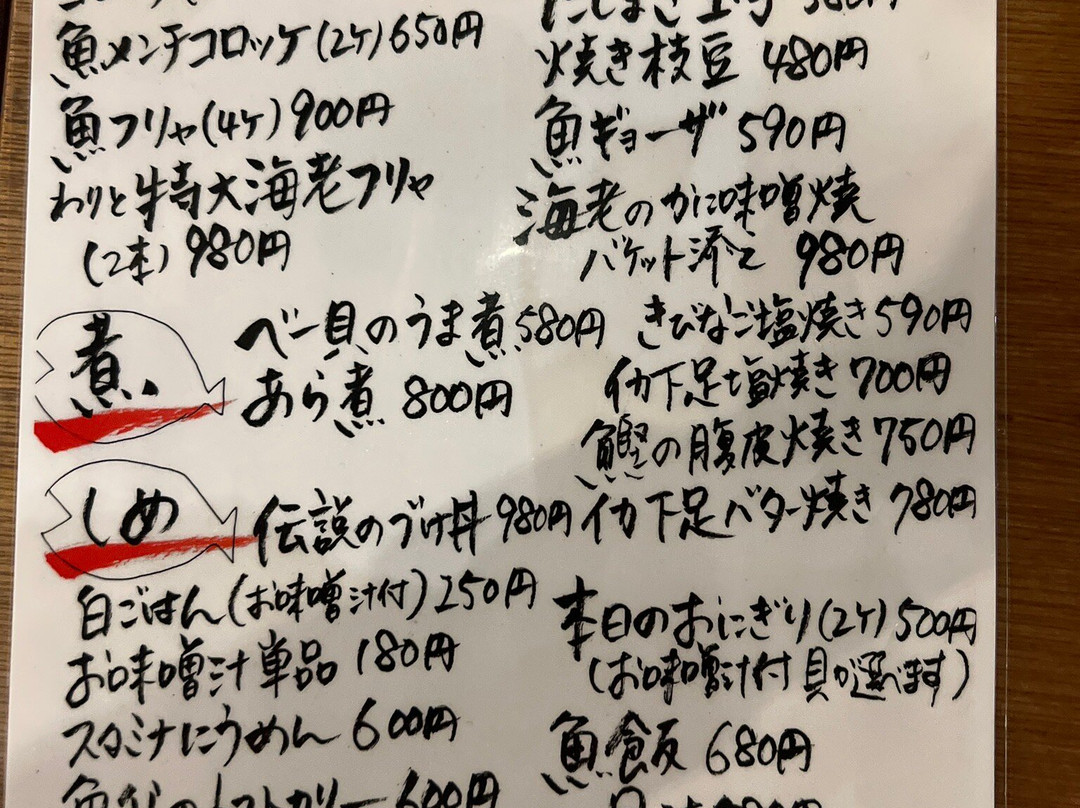 魚メンチコロッケ(2ケ)650円
魚フリャ(4ケ)900円
わりと特大海老フリャ
(2本)980円
焼き枝豆 480円
魚ギョーザ 590円
海老のかに味噌焼
バケット添え 980円
煮
べー貝のうま煮 580円
あら煮 800円
きびなご塩焼き 590円
イカ下足塩焼き 700円
鰹の腹皮焼き 750円
イカ下足バター焼き 780円
しめ
伝説のづけ丼 980円
白ごはん(お味噌汁付)250円
お味噌汁単品 180円
スタミナにうめん 600円
600円
本日のおにぎり(2ケ)500円
(お味噌汁付 具が選べます)
魚飯 680円